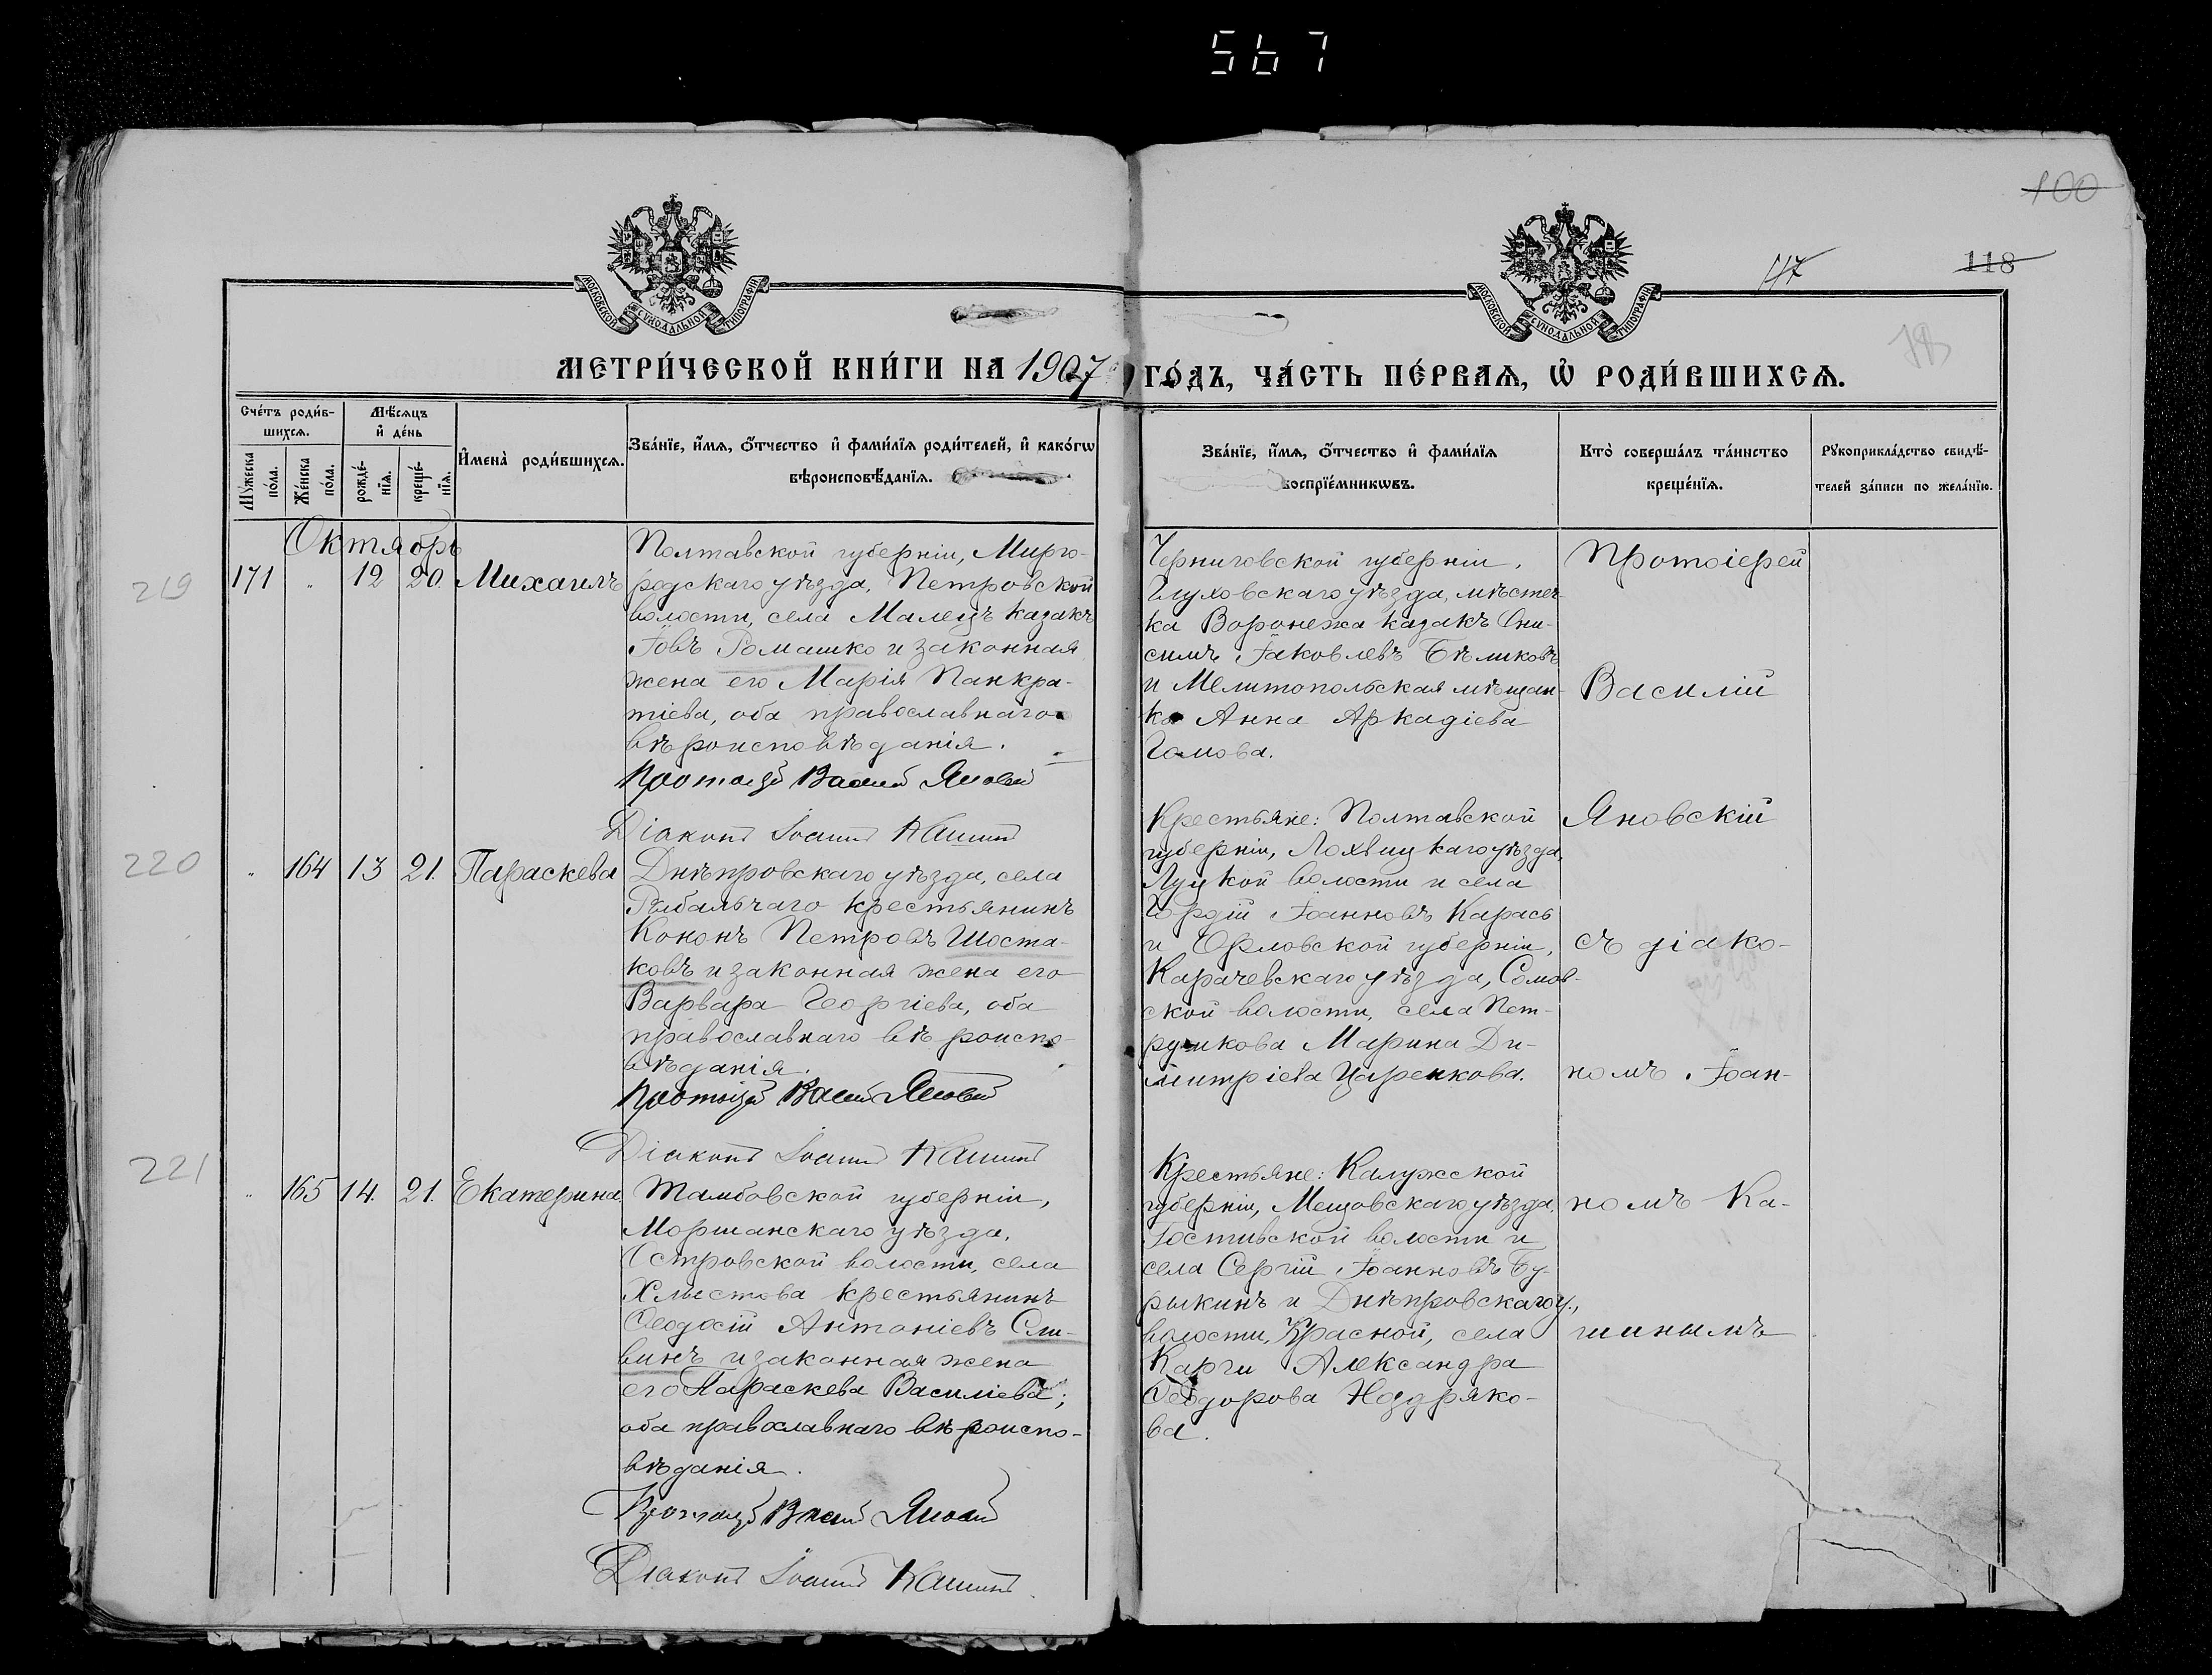 567
100
117
118
МОСКОВСКОЙ СѴНОДАЛЬНОЙ ТИПОГРАФІИ
МОСКОВСКОЙ СѴНОДАЛЬНОЙ ТИПОГРАФІИ
МЕТРИ́ЧЕСКОЙ КНИ́ГИ НА 1907 ГО́ДЪ, ЧА́СТЬ ПЕ́РВАЯ, Ѡ҆ РОДИ́ВШИХСЯ.
Сче́тъ роди́в-
шихся.
Мꙋ́жеска по́ла.
Же́нска по́ла.
Мѣ́сяцъ
и҆ де́нь
рожде́-
нїя.
креще́-
нїя.
И҆мена̀ роди́вшихся.
Зва́нїе, и҆́мя, ѻ҆́тчество и҆ фами́лїя роди́телей, и҆ како́гѡ
вѣроисповѣ́данїя.
Зва́нїе, и҆́мя, ѻ҆́тчество и҆ фами́лїя
воспрїе́мникѡвъ.
Кто̀ соверша́лъ та́инство
креще́нїя.
Рꙋкоприкла́дство свидѣ́-
телей за́писи по жела́нїю.
Октябрь
219
171 " 12 20. Михаилъ
Полтавской губерніи, Мирго-
родскаго уѣзда, Петровской
волости, села Малецъ казакъ
Іовъ Ромашко и законная
жена его Марія Панкра-
тіева, оба православнаго
вѣроисповѣданія.
Протоіерей Василій Яновскій
Діаконъ Іоаннъ Кашинъ
Черниговской губерніи,
Глуховскаго уѣзда, мѣстеч-
ка Воронежа казакъ Они-
симъ Іаковлевъ Бѣликовъ
и Мелитопольская мѣщан-
ка Анна Аркадіева
Гамова.
220
" 164 13 21. Параскева
Днѣпровскаго уѣзда, села
Рыбальчаго крестьянинъ
Кононъ Петровъ Шоста-
ковъ и законная жена его
Варвара Георгіева, оба
православнаго вѣроиспо-
вѣданія.
Протоіерей Василій Яновскій
Діаконъ Іоаннъ Кашинъ
Крестьяне: Полтавской
губерніи, Лохвицкаго уѣзда,
Луцкой волости и села
Гордій Іоанновъ Карась
и Орловской губерніи,
Карачевскаго уѣзда, Сомов-
ской волости, села Пет-
рушкова Марина Ди-
митріева Царенкова.
221
" 165 14. 21. Екатерина
Тамбовской губерніи,
Моршанскаго уѣзда,
Островской волости, села
Хлыстова крестьянинъ
Ѳеодосій Антоніевъ Сли-
винъ и законная жена
его Параскева Василіева;
оба православнаго вѣроиспо-
вѣданія.
Протоіерей Василій Яновскій
Діаконъ Іоаннъ Кашинъ
Крестьяне: Калужской
губерніи, Мещовскаго уѣзда,
Гостивской волости и
села Сергій Іоанновъ Бу-
рыкинъ и Днѣпровскаго у.,
волости, Красной, села
Карги Александра
Ѳеодорова Ноздряко-
ва.
Протоіерей
Василій
Яновскій
съ діако-
номъ Іоан-
номъ Ка-
шинымъ